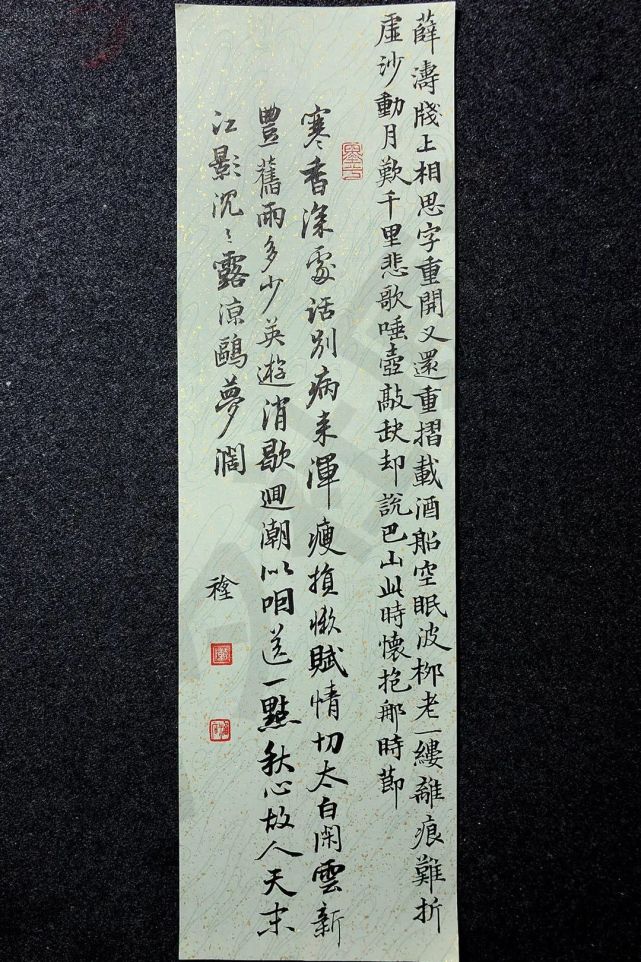 薛濤牋上相思字重開又還重摺載酒船空眠波柳老一縷離痕難折
虛沙動月歎千里悲歌唾壺敲缺却說巴山此時懷抱那時節
寒香深處話別病來渾瘦損懶賦情切太白閑雲新
豐舊雨多少英遊消歇迴潮似咽送一點秋心故人天末
江影沉〻露涼鷗夢闊